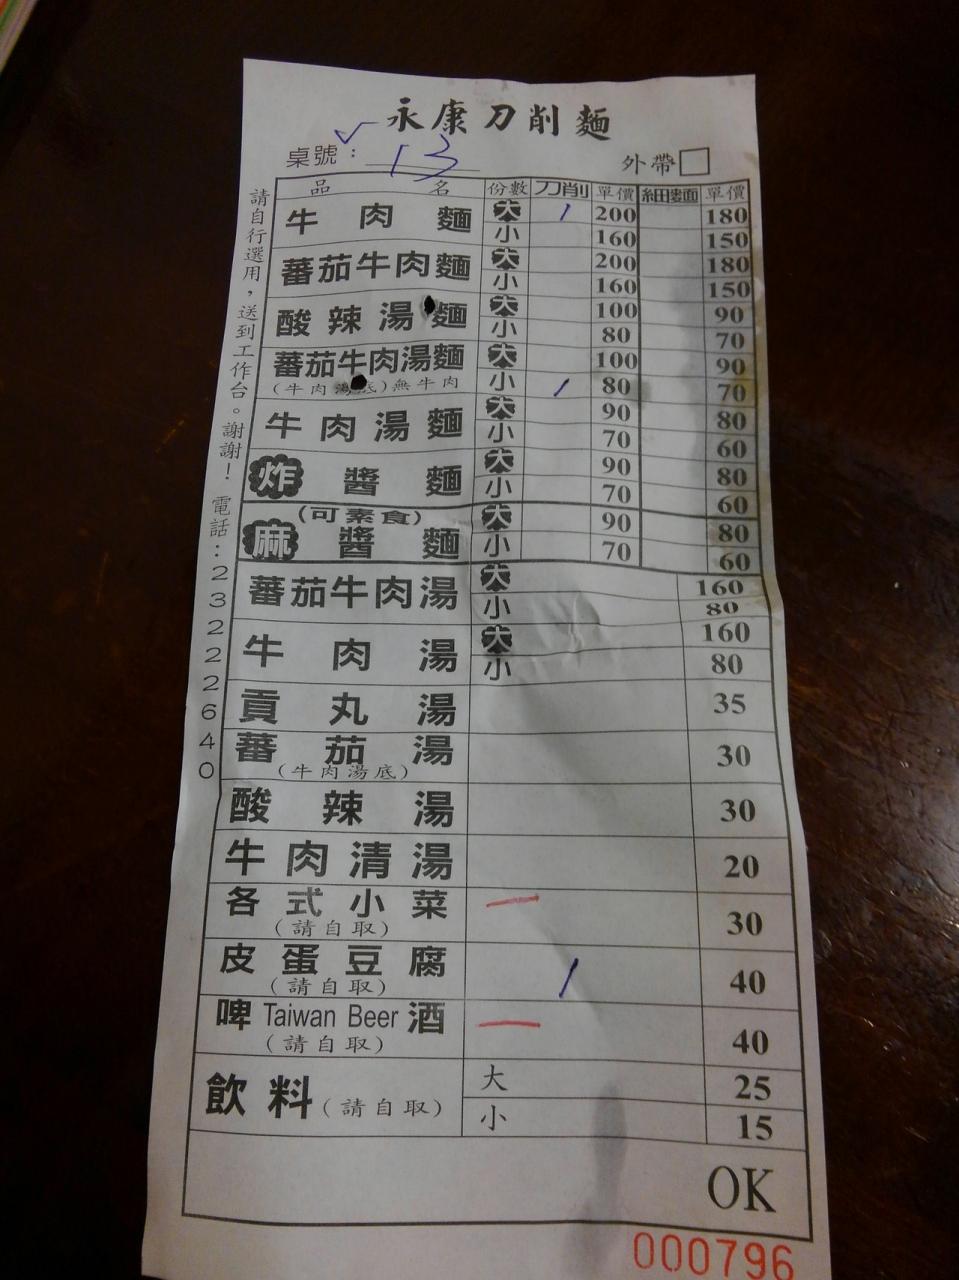 永康刀削麵
桌號：13 外帶
品名 份數 刀削 單價 細麵 單價
牛肉麵 大 / 200 180
小 160 150
蕃茄牛肉麵 大 200 180
小 160 150
酸辣湯麵 大 100 90
小 80 70
蕃茄牛肉湯麵 大 100 90
(牛肉湯底)無牛肉 小 / 80 70
牛肉湯麵 大 90 80
小 70 60
炸醬麵 大 90 80
小 70 60
(可素食)
麻醬麵 大 90 80
小 70 60
蕃茄牛肉湯 大 160
小 80
牛肉湯 大 160
小 80
貢丸湯 35
蕃茄湯 30
(牛肉湯底)
酸辣湯 30
牛肉清湯 20
各式小菜 一 30
(請自取)
皮蛋豆腐 / 40
(請自取)
啤 Taiwan Beer 酒 一 40
(請自取)
飲料(請自取) 大 25
小 15
OK
000796
請自行選用，送到工作台。謝謝！ 電話：23222640